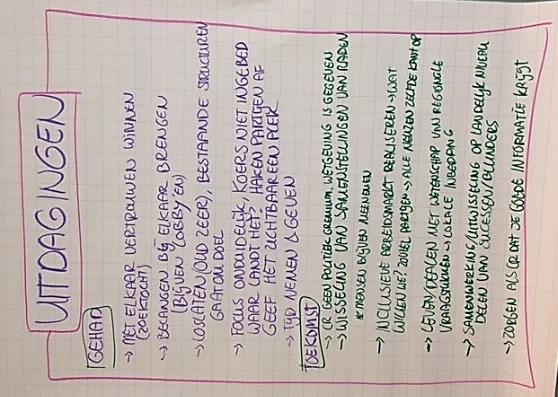 UITDAGINGEN
GEHAD
→ MET ELKAAR VERTROUWEN WINNEN
(ZOEKTOCHT)
→ BELANGEN BIJ ELKAAR BRENGEN
(BLIJVEN LOBBYEN)
→ LOSLATEN (OUD ZEER), BESTAANDE STRUCTUREN
GAAT OM DOEL
→ FOCUS ONDUIDELIJK, KOERS NIET INGEBED
WAAR LANDT HET? HAKEN PARTIJEN AF
GEEF HET ZICHTBAAR EEN PLEK
→ TIJD NEMEN & GEVEN
TOEKOMST
→ CR GEEN POLITIEK GREMIUM, WETGEVING IS GEGEVEN
→ WISSELING VAN SAMENSTELLINGEN VAN RADEN
* MENSEN BLIJVEN MEENEMEN
→ INCLUSIEVE ARBEIDSMARKT REALISEREN → WAT
WILLEN WE? ZOVEEL PARTIJEN → ALLE NEUZEN ZELFDE KANT OP
→ LEVEN/DEALEN MET WETENSCHAP VAN REGIONALE
VRAAGSTUKKEN → LOKALE INBEDDING
→ SAMENWERKING/UITWISSELING OP LANDELIJK NIVEAU
DELEN VAN SUCCESSEN/BLUNDERS
→ ZORGEN ALS CR DAT JE GOEDE INFORMATIE KRIJGT